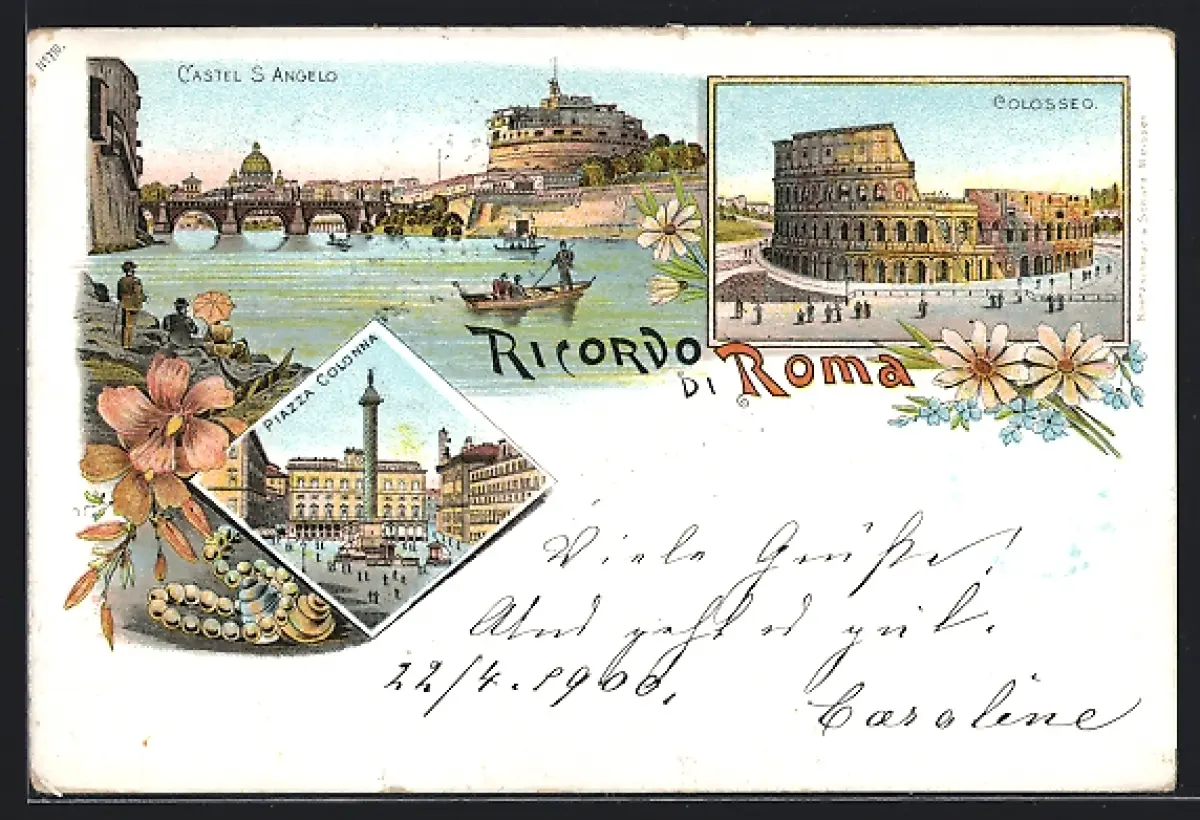 No 718.
CASTEL S ANGELO
COLOSSEO.
PIAZZA COLONNA
RICORDO
DI ROMA
Viele Grüße!
geht es gut.
22/4. 1900.
Caroline